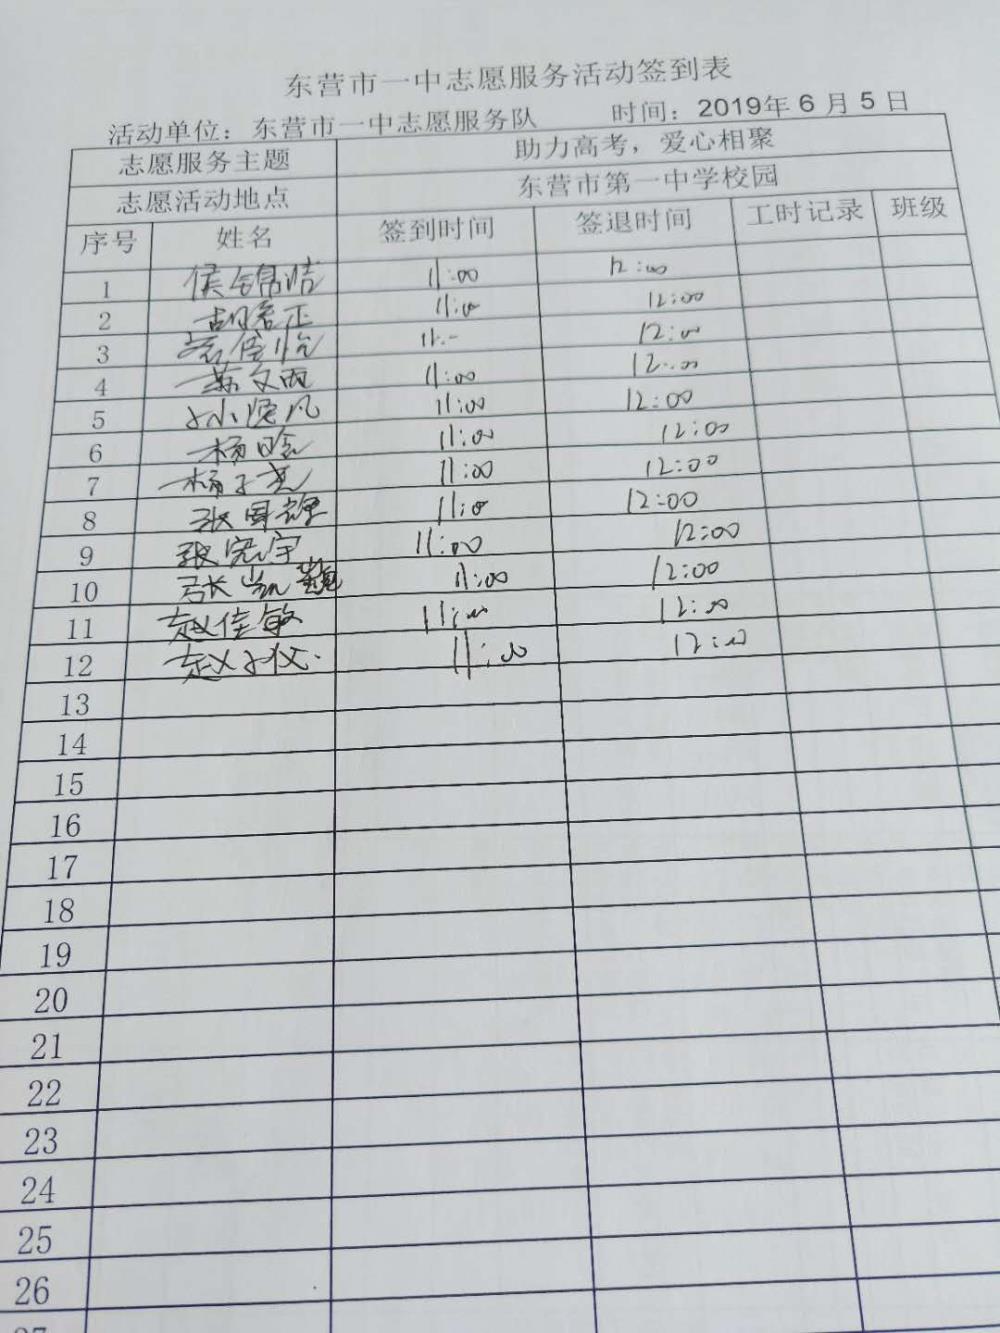 东营市一中志愿服务活动签到表
活动单位：东营市一中志愿服务队 时间：2019年 6 月 5 日
志愿服务主题 助力高考，爱心相聚
志愿活动地点 东营市第一中学校园
序号 姓名 签到时间 签退时间 工时记录 班级
1 侯锦洁 11:00 12:00
2 11:00 12:00
3 12:00
4 11:00 12:00
5 孙逸凡 11:00 12:00
6 杨晗 11:00 12:00
7 11:00 12:00
8 11:00 12:00
9 张宏宇 11:00 12:00
10 11:00 12:00
11 赵佳敏 11:00 12:00
12 赵子仪 11:00 12:00
13
14
15
16
17
18
19
20
21
22
23
24
25
26